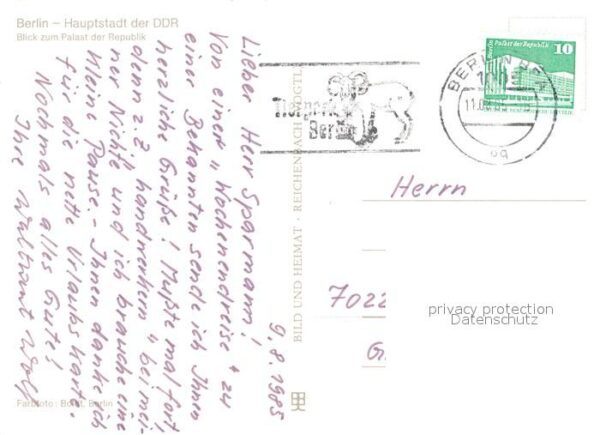 Berlin – Hauptstadt der DDR
Blick zum Palast der Republik
9.8.1985
Lieber Herr Sparmann!
Von einer "Wochenendreise" zu
einer Bekannten sende ich Ihnen
herzliche Grüße! Mußte mal fort,
denn n. 2 "Handwerkern" bei mei-
ner Nichte und ich brauche eine
kleine Pause. - Ihnen danke ich
für die nette Urlaubskarte.
Nochmals alles Gute!
Ihre Waltraut Wolf
Farbfoto: Berlin
BILD UND HEIMAT · REICHENBACH VOGTL
Tierpark
Berlin
BERLIN
Berlin Palast der Republik
10
DDR
Herrn
7022
G
privacy protection
Datenschutz